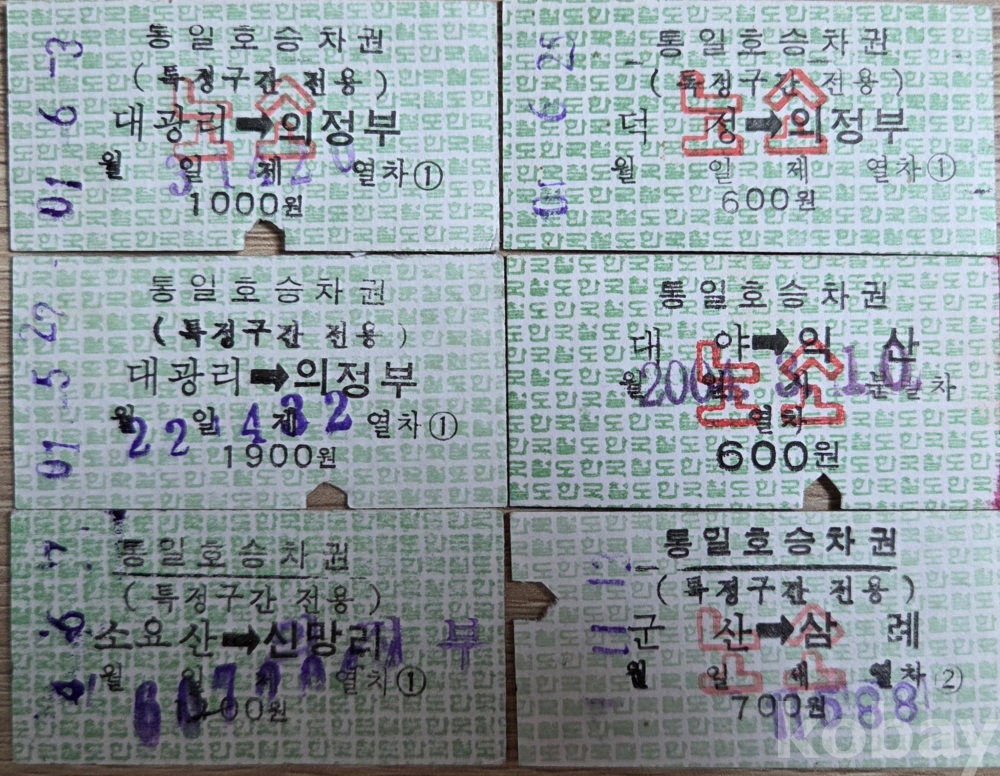 통일호승차권
(특정구간 전용)
대광리➡의정부
월 일 제 열차①
1000원
01 6 -3
노 소
통일호승차권
(특정구간 전용)
덕 정➡의정부
월 일 제 열차①
600원
노 소
통일호승차권
(특정구간 전용)
대광리➡의정부
월 일 제 열차①
22 1432
1900원
01 -5 27
통일호승차권
대 야➡익 산
월 일 시 분 열차
열차
600원
노 소
통일호승차권
(특정구간 전용)
소요산➡신망리
월 일 제 열차①
통일호승차권
(특정구간 전용)
군 산➡삼 례
월 일 제 열차②
700원
노 소
kobay